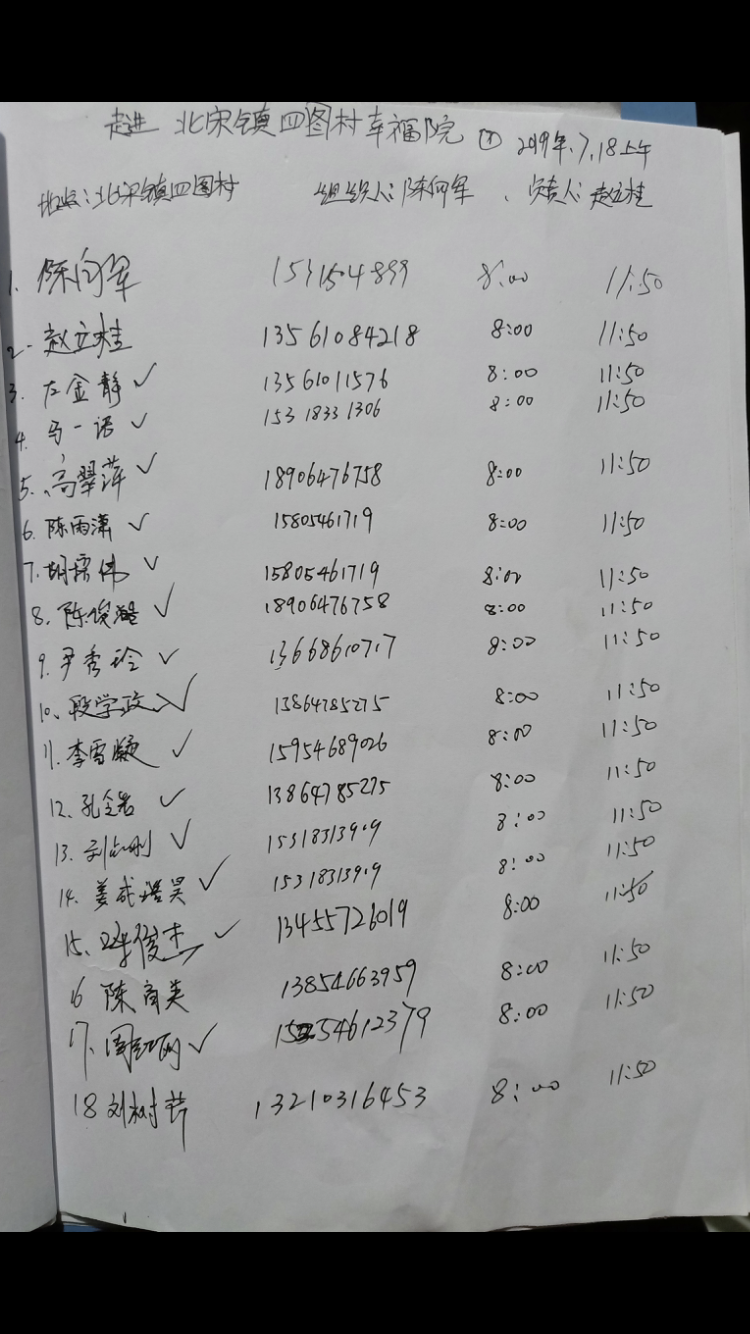 走进 北宋镇四图村幸福院 2019年.7.18上午
地点:北宋镇四图村 组织人:陈向军 、负责人:赵立桂
1. 陈向军 8:00 11:50
2. 赵立桂 13561084218 8:00 11:50
3. 左金静 ✓ 13561011576 8:00 11:50
4. 马一诺 ✓ 15318331306 8:00 11:50
5. 高翠萍 ✓ 18906476758 8:00 11:50
6. 陈雨潇 ✓ 15805461719 8:00 11:50
7. 胡 伟 ✓ 15805461719 8:00 11:50
8. 陈俊 ✓ 18906476758 8:00 11:50
9. 尹秀玲 ✓ 13668610717 8:00 11:50
10、段学政 ✓ 13864785275 8:00 11:50
11. 李雪凝 ✓ 15954689026 8:00 11:50
12、孔令岩 ✓ 13864785275 8:00 11:50
13. 刘 刚 ✓ 15318313919 8:00 11:50
14. 姜成浩昊 ✓ 15318313919 8:00 11:50
15、 俊杰 ✓ 13455726019 8:00 11:50
16 陈 英 13854663959 8:00 11:50
17、周红 ✓ 8:00 11:50
18 刘树芹 13210316453 8:00 11:50